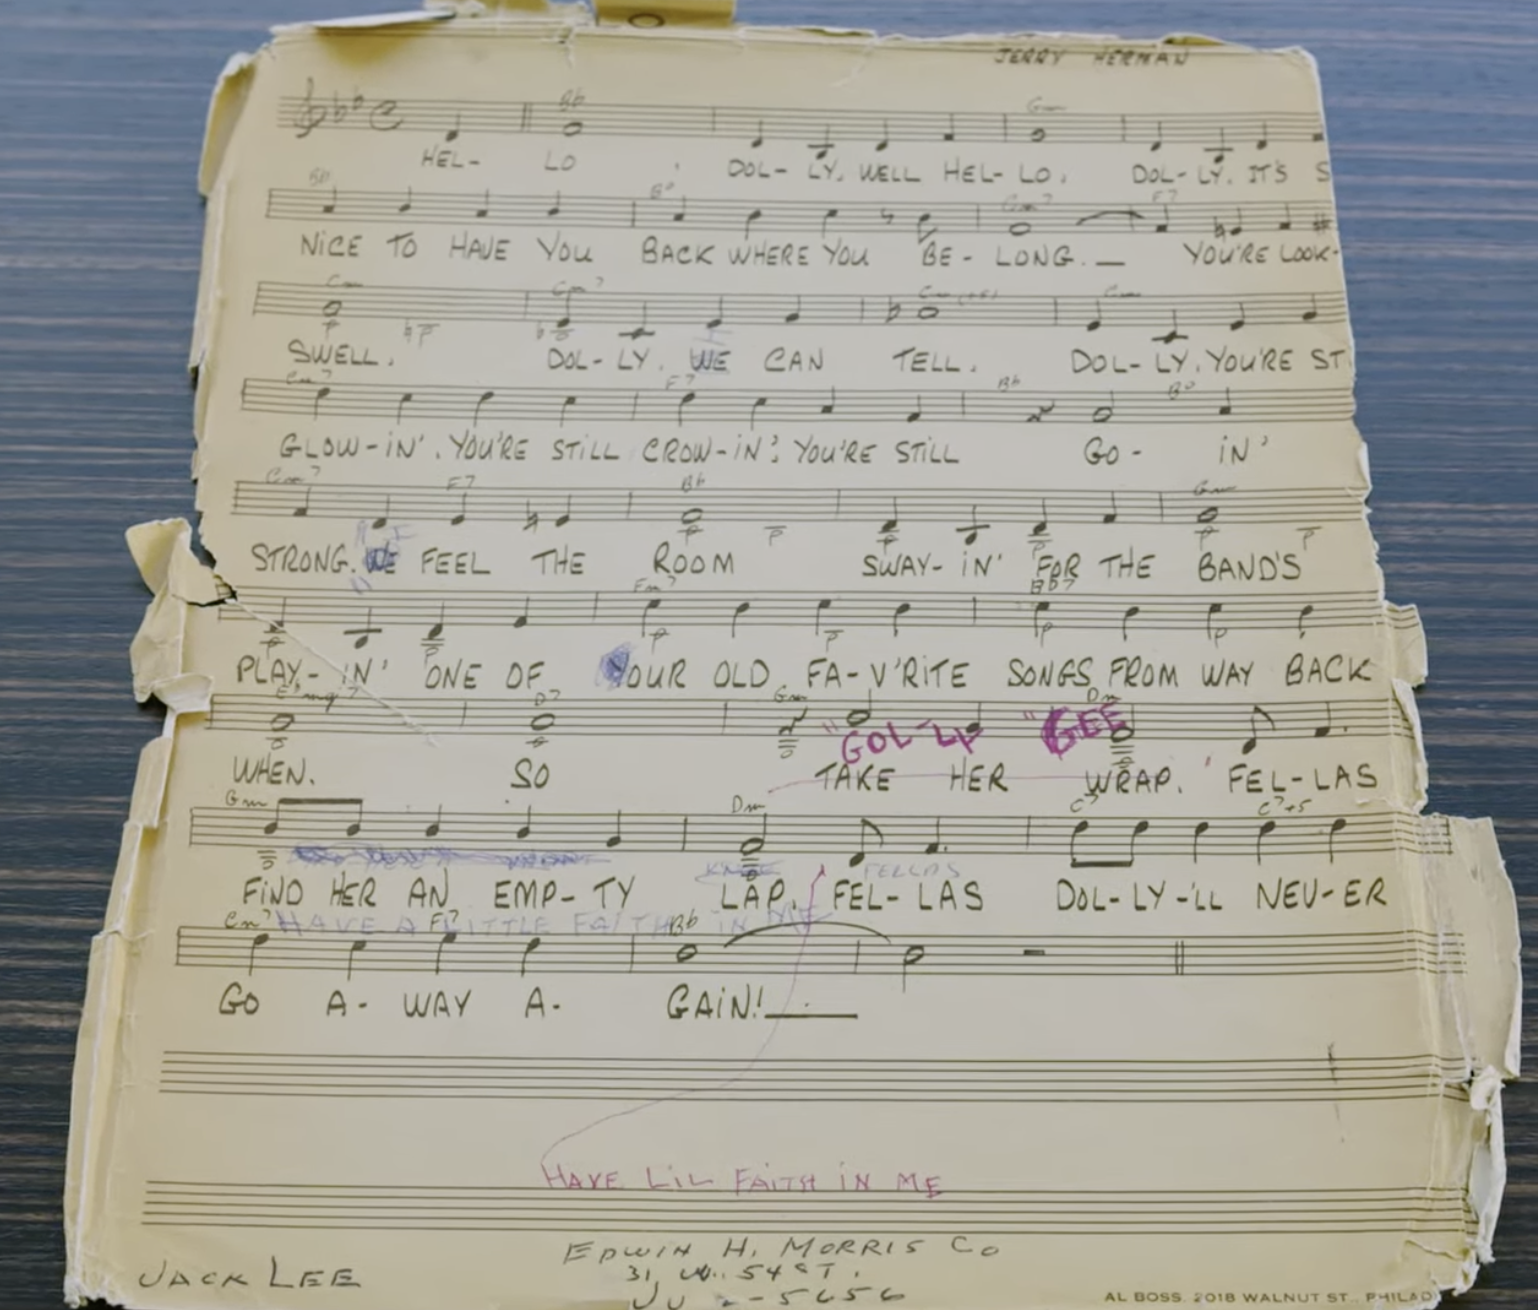 JERRY HERMAN
Bb Gm
HEL- LO DOL- LY. WELL HEL- LO, DOL- LY. IT'S S
Bb B° Cm7 F7
NICE TO HAVE YOU BACK WHERE YOU BE - LONG. — YOU'RE LOOK-
Cm Cm7 Cm (+5) Cm
SWELL. DOL- LY. WE CAN TELL. DOL- LY. YOU'RE ST
Cm7 F7 Bb B°
GLOW-IN'. YOU'RE STILL CROW-IN'; YOU'RE STILL GO- IN'
Cm7 F7 Bb Gm
STRONG. WE FEEL THE ROOM SWAY- IN' FOR THE BAND'S
Fm7 Bb7
PLAY- IN' ONE OF YOUR OLD FA- V'RITE SONGS FROM WAY BACK
D7 Gm Dm
"GOL-LY "GEE
WHEN. SO TAKE HER WRAP. FEL-LAS
Gm Dm C7 C7+5
KNEE FELLAS
FIND HER AN EMP-TY LAP. FEL-LAS DOL-LY-'LL NEV-ER
HAVE A LITTLE FAITH IN ME
Cm7 F7 Bb
GO A- WAY A- GAIN!
HAVE LIL FAITH IN ME
EDWIN H. MORRIS Co
31 W. 54 ST.
JU 2-5656
JACK LEE
AL BOSS, 2018 WALNUT ST., PHILAD